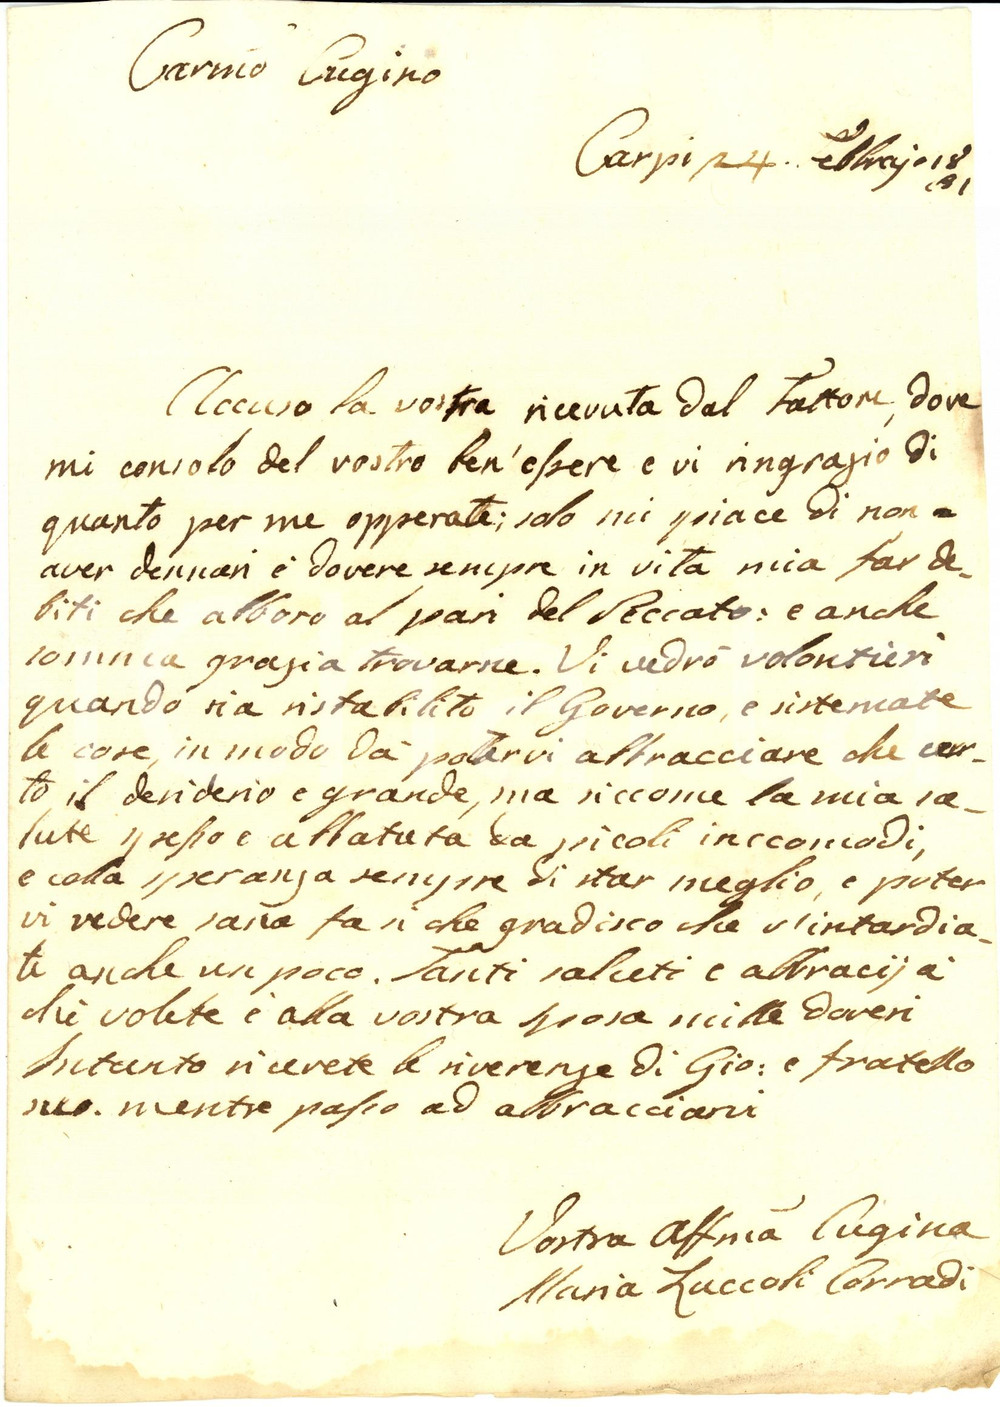 Carmō Cugino
Carpi 24. Febbrajo 18
Accuso la vostra ricevuta dal Fattore, dove
mi consolo del vostro ben'eßere e vi ringrazio di
quanto per me opperate; solo mi spiace di non =
aver dennari é dovere sempre in vita mia far de-
biti che abboro al pari del Peccato: e anche
somma grazia trovarne. Vi vedrò volontieri
quando sia ristabilito il Governo, e sistemate
le cose, in modo da potervi abbracciare che cer-
to il desiderio e grande, ma siccome la mia sa-
lute speßo e abbatuta da picoli inccomodi,
e colla speranza sempre di star meglio, e poter
vi vedere sana fa si che gradisco che v'intardia-
te anche un poco. Tanti saluti e abbracij à
chi volete é alla vostra sposa mille doveri
Intanto ricevete le riverenze di Gio: e fratello
suo. mentre paßo ad abbracciarvi
Vostra Affmā Cugina
Maria Zuccoli Corradi